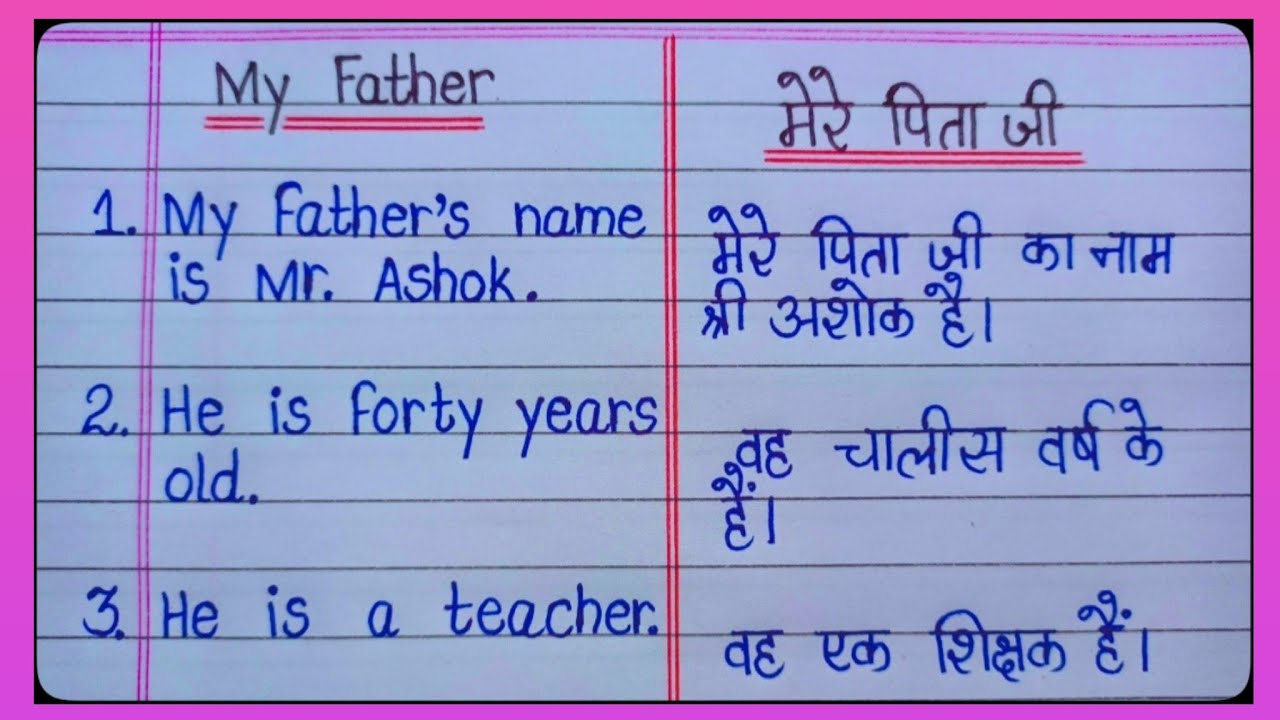 My Father
1. My Father's name
is Mr. Ashok.
2. He is forty years
old.
3. He is a teacher.
मेरे पिता जी
मेरे पिता जी का नाम
श्री अशोक है।
वह चालीस वर्ष के
हैं।
वह एक शिक्षक हैं।